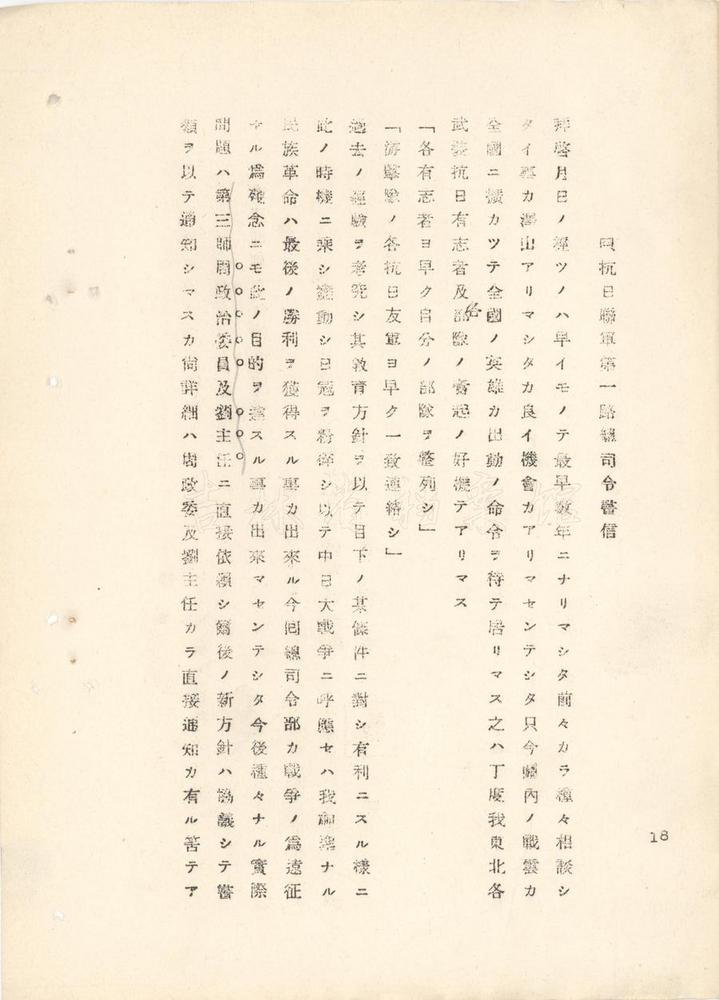 四抗日聯軍第一路總司令書信
拜啓月日ノ經ツノハ早イモノテ最早數年ニナリマシタ前々カラ種々相談シ
タイ事カ澤山アリマシタカ良イ機會カアリマセンテシタ只今蟠內ノ戰雲カ
全國ニ擴カツテ全國ノ英雄カ出動ノ命令ヲ待テ居リマス之ハ丁度我東北各
武裝抗日有志者及部隊ノ奮起ノ好機テアリマス
「各有志者ヨ早ク自分ノ部隊ヲ整列シ」
「海擊隊ノ各抗日友軍ヨ早ク一致連絡シ」
過去ノ經驗ヲ考究シ其教育方針ヲ以テ目下ノ某條件ニ對シ有利ニスル樣ニ
此ノ時機ニ乘シ蠻動シ日冠ヲ粉碎シ以テ中日大戰爭ニ呼應セハ我神聖ナル
民族革命ハ最後ノ勝利ヲ獲得スル事カ出來ル今回總司令部カ戰爭ノ爲遠征
サル爲殘念ニモ此ノ目的ヲ達スル事カ出來マセンテシタ今後種々ナル實際
問題ハ第三師周政治委員及劉主任ニ直接依賴シ爾後ノ新方針ハ協議シテ書
類ヲ以テ通知シマスカ尚詳細ハ周政委及劉主任カラ直接通知カ有ル筈テア
18